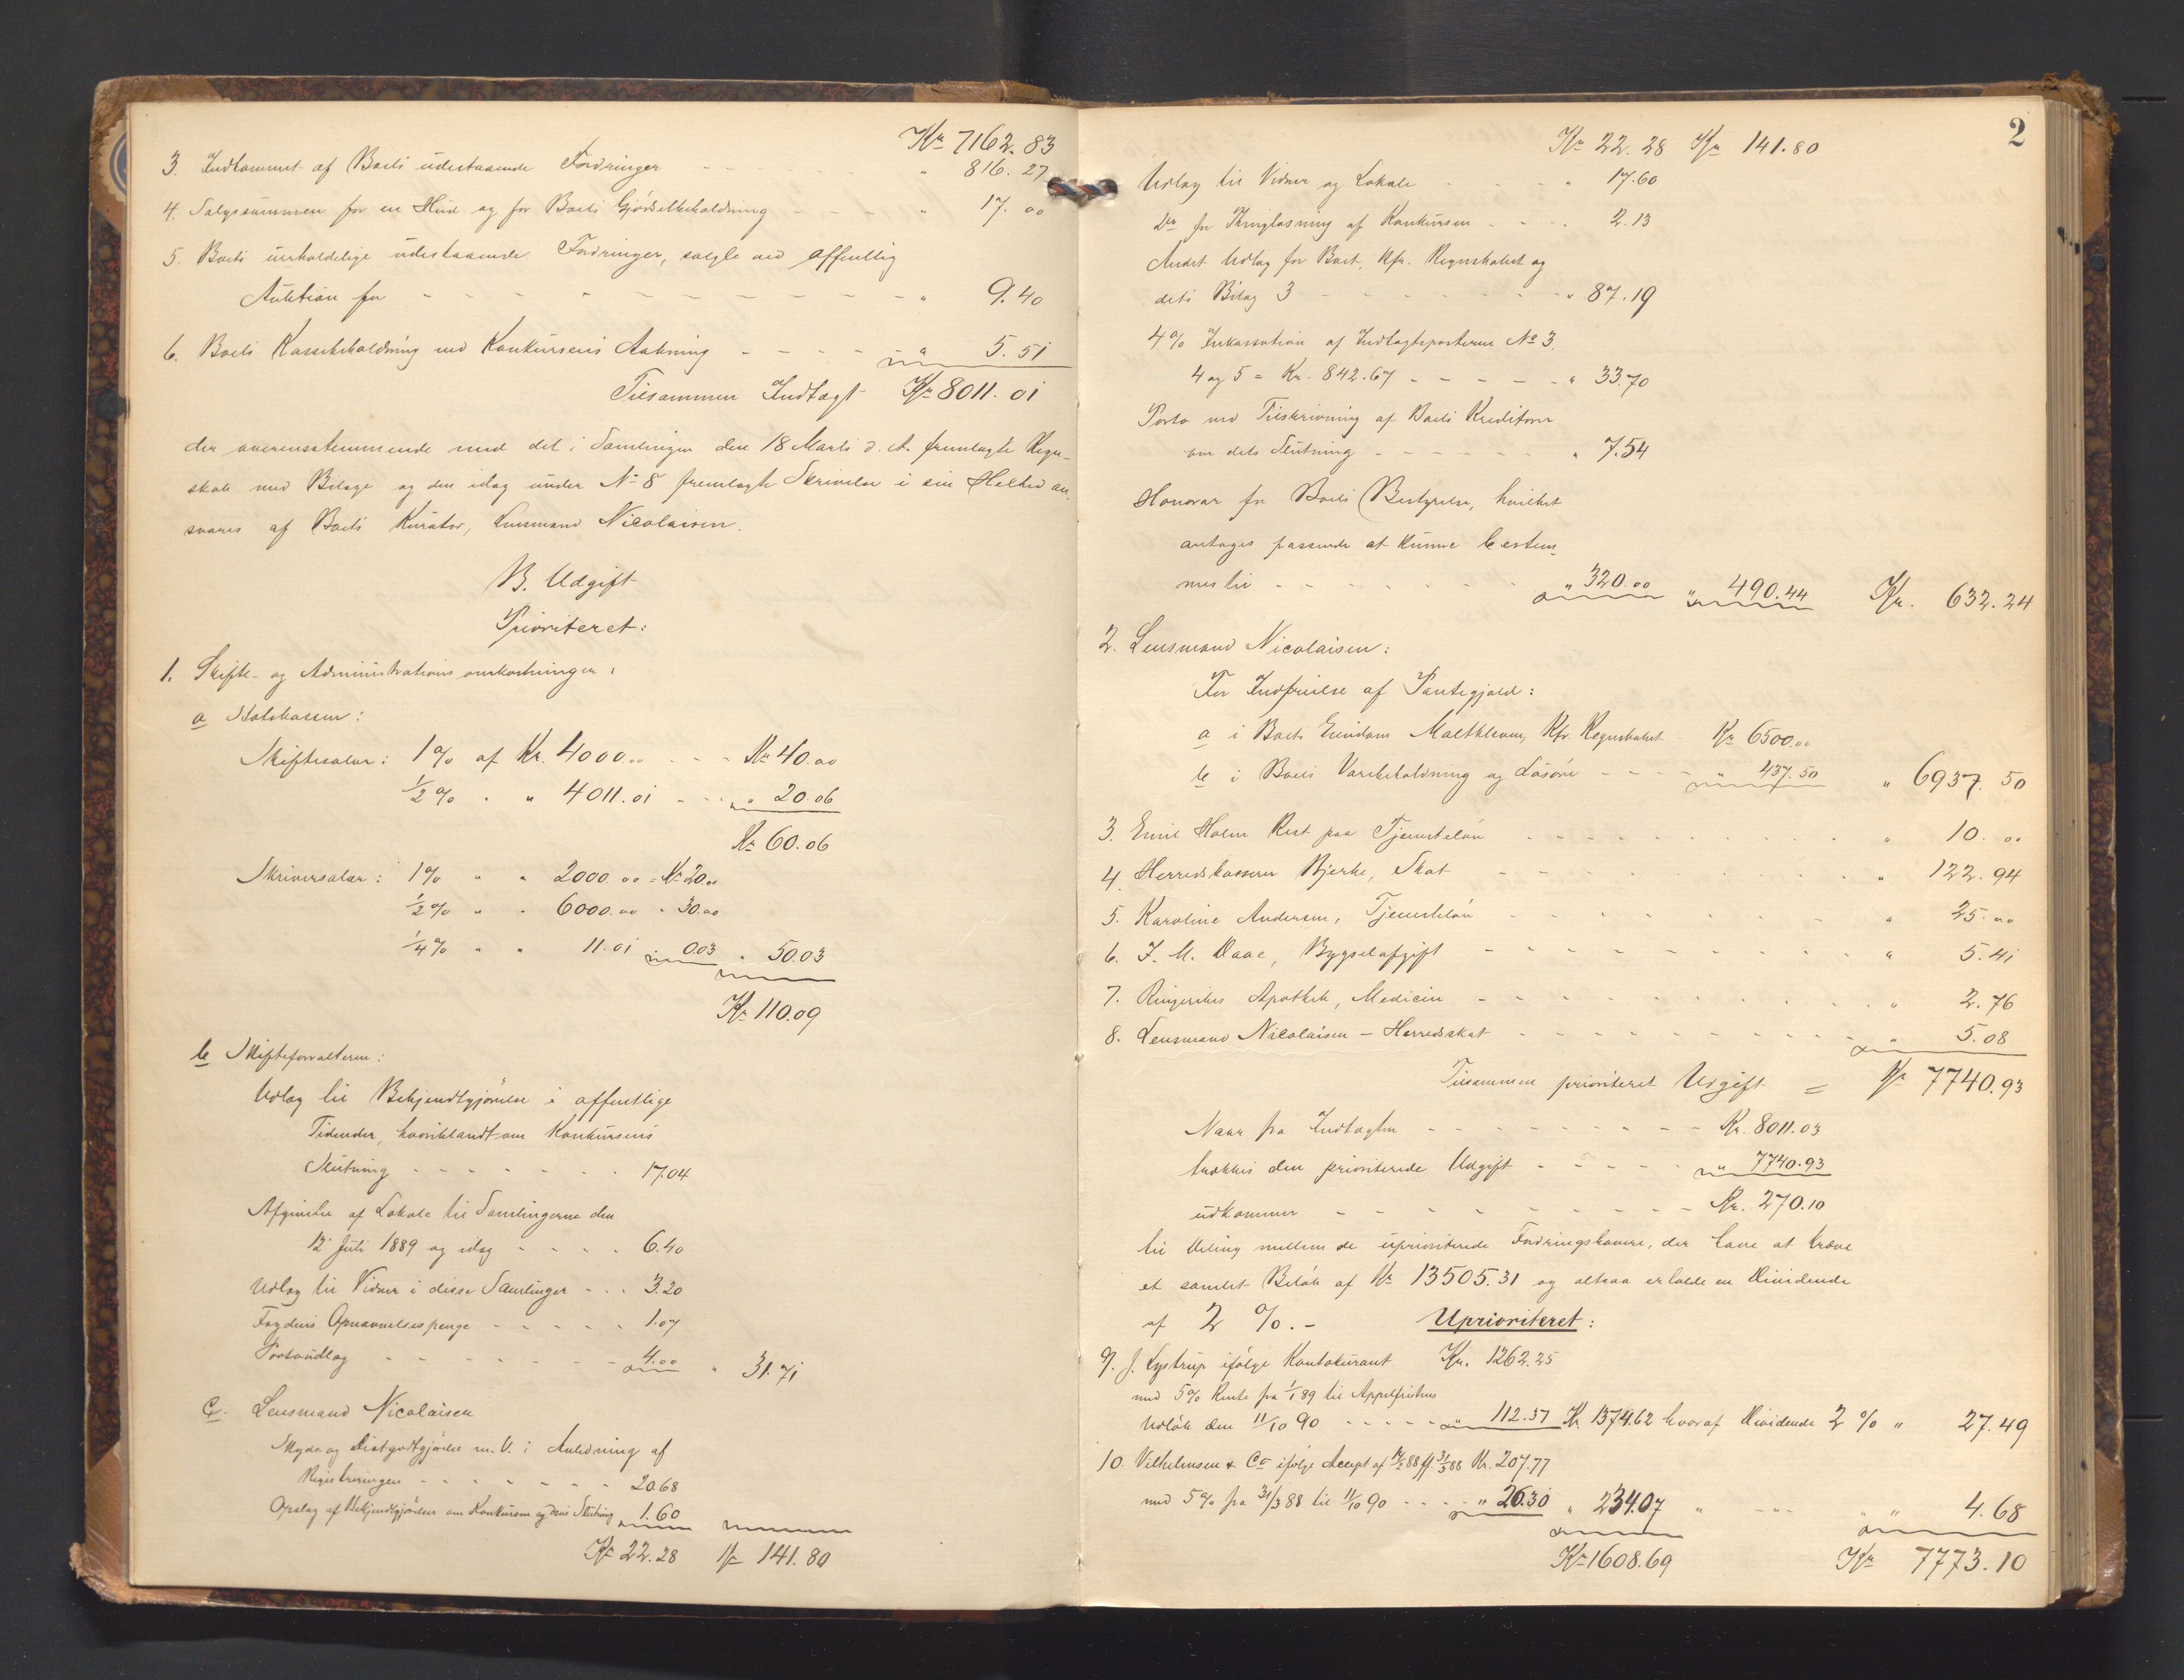 Kr 7162.83
3. Indkommet af Boets udestaaende Fordringer - - - " 816.27
4. Salgssummen for en Hud og for Boets Gjødselbeholdning - - - " 17.00
5. Boets uerholdelige udestaaende Fordringer, solgte ved offentlig
Auktion for - - - - - - - - " 9.40
6. Boets Kassebeholdning ved Konkursens Aabning - - - - " 5.51
Tilsammen Indtægt Kr 8011.01
der overensstemmende med det i Samlingen den 18 Marts d. A. fremlagte Regn-
skab med Bilage og den idag under No 8 fremlagte Skrivelse i sin Helhed an-
svares af Boets Kurator, Lensmand Nicolaisen.
B. Udgift
Prioriteret:
1. Skifte- og Administrationsomkostninger:
a Statskassen:
Skiftesalær: 1 % af Kr. 4000.00 - - - Kr 40.00
1/2 % " " 4011.01 - - - " 20.06
Kr 60.06
Skriversalær: 1 % " " 2000.00 = Kr 20.00
1/2 % " " 6000.00 " 30.00
1/4 % " " 11.01 " 0.03 " 50.03
Kr 110.09
b Skifteforvalteren:
Udlæg til Bekjendtgjørelse i offentlige
Tidender, hvoriblandt om Konkursens
Slutning - - - - - - - 17.04
Afgivelse af Lokale til Samlingerne den
12 Juli 1889 og idag - - - - 6.40
Udlæg til Vidner i disse Samlinger - - - 3.20
Fogdens Opnævnelsespenge - - - - - 1.07
Portoudlæg - - - - - - - 4.00 " 31.71
c. Lensmand Nicolaisen
Skyds- og Diætgodtgjørelse m. V. i Anledning af
Registreringen - - - - - - - 20.68
Opslag af Bekjendtgjørelser om Konkursen og dens Slutning " 1.60
Kr 22.28 Kr 141.80
2
Kr 22.28 Kr 141.80
Udlæg til Vidner og Lokale - - - - " 17.60
Do for Thinglæsning af Konkursen - - - 2.13
Andet Udlæg for Boet, Kfr. Regnskabet og
dets Bilag 3 - - - - - - - " 87.19
4 % Inkassation af Indtægtsposterne No 3,
4 og 5 = Kr. 842.67 - - - - - " 33.70
Porto ved Tilskrivning af Boets Kreditorer
om dets Slutning - - - - - - " 7.54
Honorar for Boets Bestyrelse, hvilket
antages passende at kunne bestem-
mes til - - - - - - " 320.00 " 490.44 Kr. 632.24
2. Lensmand Nicolaisen:
For Indfrielse af Pantegjæld:
a i Boets Eiendom Moetkleven, Kfr. Regnskabet - Kr 6500.00
b i Boets Varebeholdning og Løsøre - - - - " 437.50 " 6937.50
3. Emil Holm Rest paa Tjenesteløn - - - - - - - - - " 10.00
4. Herredskasserer Bjerke, Skat - - - - - - - - - " 122.94
5. Karoline Andersen, Tjenesteløn - - - - - - - - " 25.00
6. I. M. Daae, Bygselafgift - - - - - - - - - " 5.41
7. Ringerikes Apothek, Medicin - - - - - - - - - " 2.76
8. Lensmand Nicolaisen - Herredsskat - - - - - - - - " 5.08
Tilsammen prioriteret Udgift = Kr 7740.93
Naar fra Indtægten - - - - - - - - Kr. 8011.03
trækkes den prioriterede Udgift - - - - - " 7740.93
udkommer - - - - - - - - Kr. 270.10
til Deling mellem de uprioriterede Fordringshavere, der have at kræve
et samlet Beløb af Kr 13505.31 og altsaa erholde en Dividende
af 2 %. - Uprioriteret:
9. J. Lystrup ifølge Kontokurant Kr. 1262.25
med 5 % Rente fra 1/1 89 til Appelfristens
Udløb den 11/10 90 - - - - - " 112.37 Kr 1374.62 hvoraf Dividende 2 % " 27.49
10. Vilhelmsen & Co ifølge Accept af 14/2 88 ff. 31/3 88 Kr. 207.77
med 5 % fra 31/3 88 til 11/10 90 - - - - " 26.30 " 234.07 " - " - " " 4.68
Kr 1608.69 Kr 7773.10